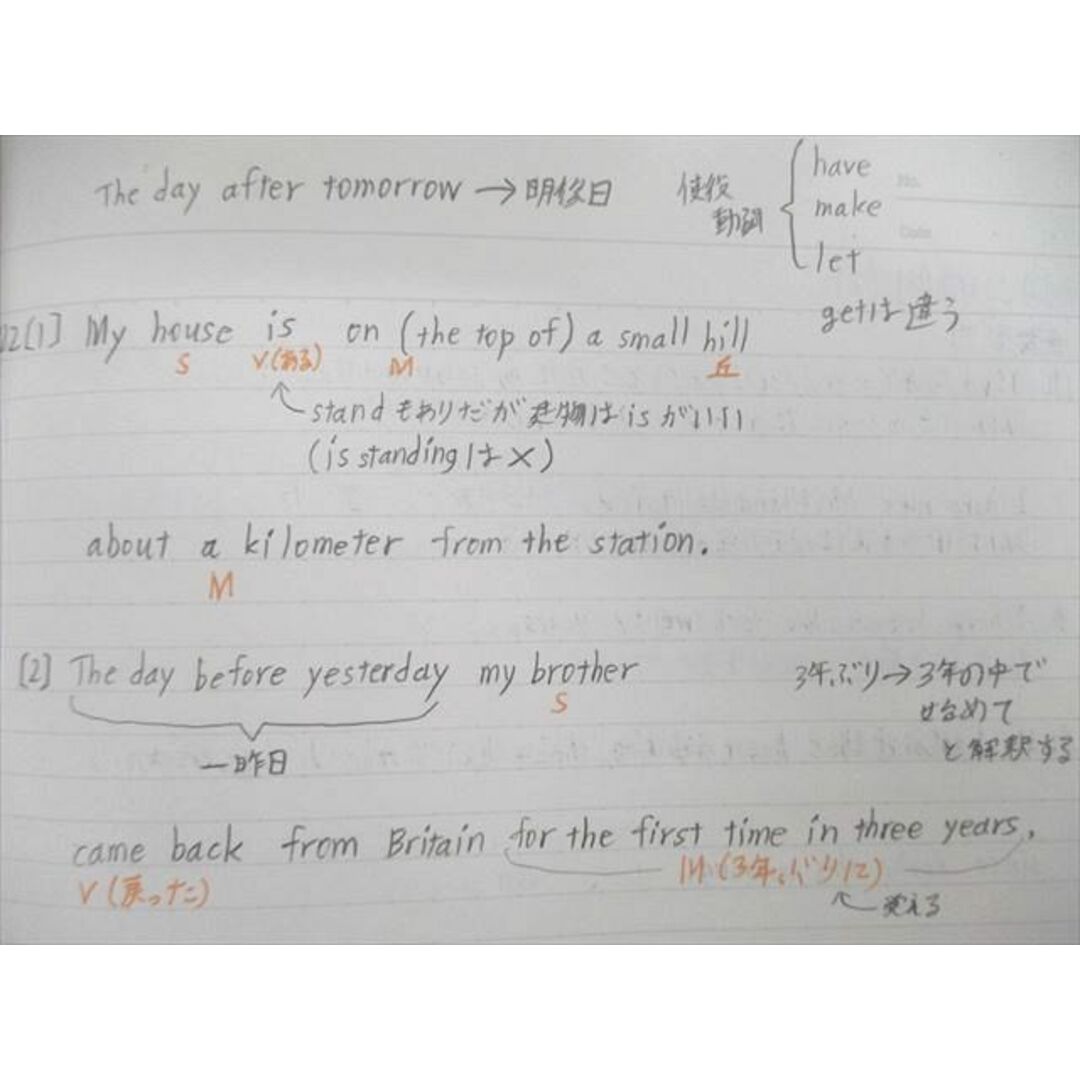 The day after tomorrow → 明後日
使役動詞 { have make let
getは違う
22[1] My house is on (the top of) a small hill
S V(ある) M 丘
standもありだが建物はisがいい
(is standingは×)
about a kilometer from the station.
M
[2] The day before yesterday my brother
S
一昨日
3年ぶり→3年の中で
始めて
と解釈する
came back from Britain for the first time in three years.
V(戻った) M(3年ぶりに)
覚える